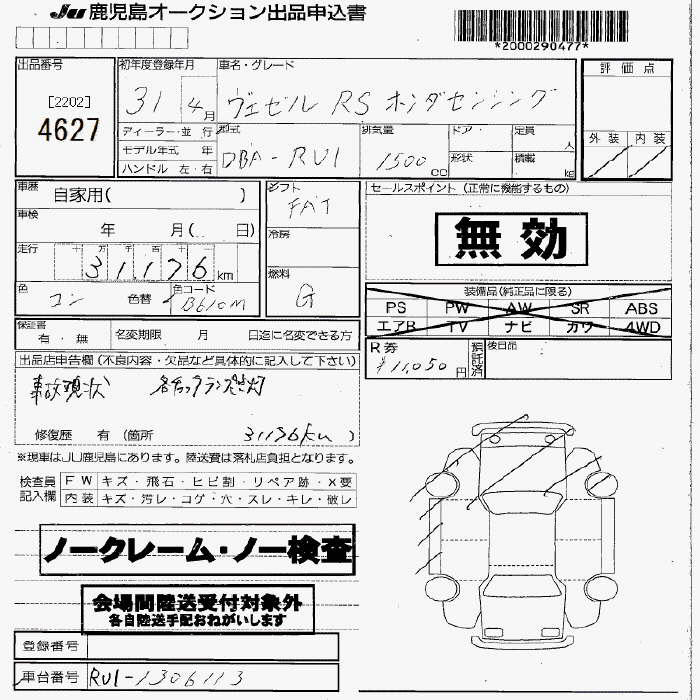 JU 鹿児島オークション出品申込書
*2000290477*
出品番号
[2202]
4627
初年度登録年月
31 4月
車名・グレード
ヴェゼル RS ホンダセンシング
評価点
外装 内装
ディーラー・並 行
モデル年式 年
ハンドル 左・右
型式
DBA-RU1
排気量
1500cc
ドア・
形状
定員 人
積載 kg
車歴 自家用( )
車検 年 月( 日)
走行 十 万 千 百 十
31,176km
色 コン 色替
色コード B610M
シフト
FAT
冷房
燃料
G
セールスポイント (正常に機能するもの)
無効
装備品(純正品に限る)
PS PW AW SR ABS
エアB TV ナビ カワ 4WD
保証書 有・無
名変期限 月 日迄に名変できる方
R券
¥11,050円
預託済
後日品
出品店申告欄(不良内容・欠品など具体的に記入して下さい)
事故現状
修復歴 有 (箇所 )
※現車はJU鹿児島にあります。陸送費は落札店負担となります。
検査員記入欄
FW キズ・飛石・ヒビ割・リペア跡・X要
内装 キズ・汚レ・コゲ・穴・スレ・キレ・破レ
ノークレーム・ノー検査
会場間陸送受付対象外
各自陸送手配おねがいします
登録番号
車台番号 RU1-1306113